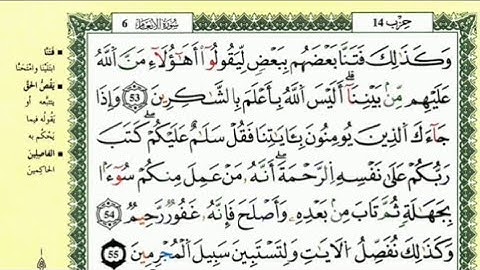 حِزْب 14
سُورَةُ الأَنْعَام 6
وَكَذَٰلِكَ فَتَنَّا بَعْضَهُم بِبَعْضٍ لِّيَقُولُوٓاْ أَهَٰٓؤُلَآءِ مَنَّ اَللَّهُ
عَلَيْهِم مِّنۢ بَيْنِنَآ أَلَيْسَ اَللَّهُ بِأَعْلَمَ بِالشَّٰكِرِينَ 53 وَإِذَا
جَآءَكَ اَلذِينَ يُومِنُونَ بِـَٔايَٰتِنَا فَقُلْ سَلَٰمٌ عَلَيْكُمْ كَتَبَ
رَبُّكُمْ عَلَىٰ نَفْسِهِ اِلرَّحْمَةَ أَنَّهُۥ مَنْ عَمِلَ مِنكُمْ سُوٓءًۢا
بِجَهَٰلَةٍ ثُمَّ تَابَ مِنۢ بَعْدِهِۦ وَأَصْلَحَ فَإِنَّهُۥ غَفُورٌ رَّحِيمٌ 54
وَكَذَٰلِكَ نُفَصِّلُ اُلْأٓيَٰتِ وَلِتَسْتَبِينَ سَبِيلَ اَلْمُجْرِمِينَ 55
فَتَنَّا
ابتلينا وامتحنّا
يَقُصُّ الحَقَّ
يتبعه أو
يقوله فيما
يحكم به
الفاصلين
الحاكمين